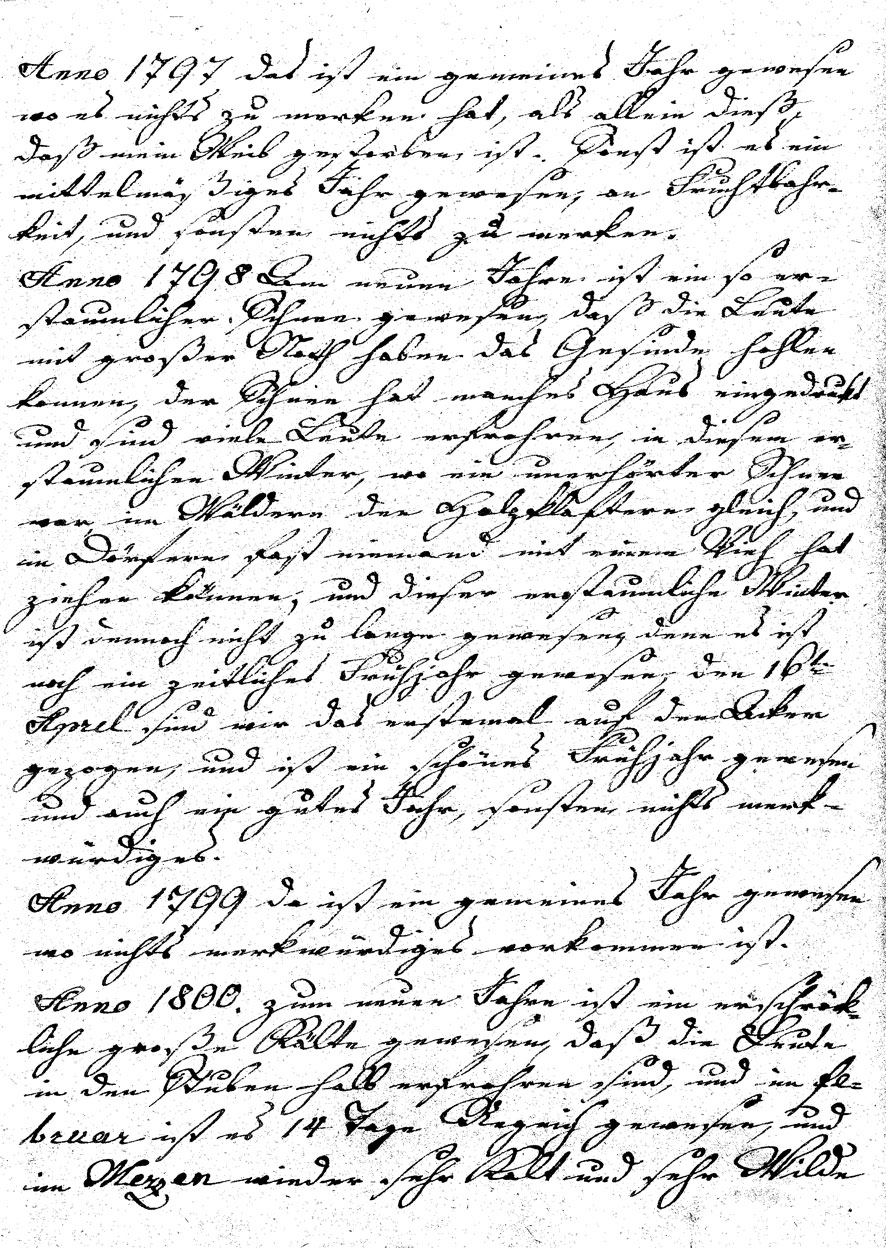 Anno 1797 das ist ein gemeines Jahr gewesen
wo es nichts zu merken hat, als allein dieß,
daß mein Weib gestorben ist. Sonst ist es ein
mittelmäßiges Jahr gewesen, an Fruchtbahr-
keit, und sonsten nichts zu merken.
Anno 1798 Am neuen Jahre ist ein so er-
staunlicher Schnee gewesen, daß die Leute
mit großer Noth haben das Gesinde hohlen
können, der Schnee hat manches Haus eingedrukt
und sind viele Leute erfrohren, in diesem er-
staunlichen Winter, wo ein unerhörter Schnee
war, in Wäldern den Holzklaftern gleich, und
in Dörfern fast niemand mit einem Vieh hat
ziehen können, und dieser erstaunliche Winter
ist dennoch nicht zu lange gewesen, denn es ist
noch ein zeitliches Frühjahr gewesen, den 16ten
Aprel sind wir das erstemal auf den Acker
gezogen, und ist ein schönes Frühjahr gewesen
und auch ein gutes Jahr, sonsten nichts merk-
würdiges.
Anno 1799 da ist ein gemeines Jahr gewesen
wo nichts merkwürdiges vorkommen ist.
Anno 1800. zum neuen Jahre ist ein erschröck-
liche große Kälte gewesen, daß die Leute
in den Stuben halb erfrohren sind, und im Fe-
bruar ist es 14 Tage gewesen, und
im Merzen wieder sehr Kalt und sehr Wilde